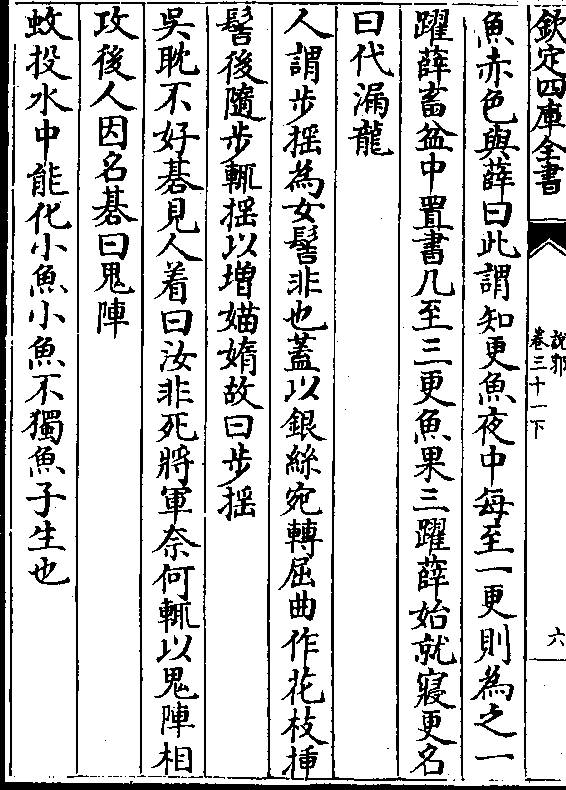 欽定四庫全書
說郛
卷三十一下
六
魚赤色與薛曰此謂知更魚夜中每至一更則為之一
躍薛畜盆中置書几至三更魚果三躍薛始就寢更名
曰代漏龍
人謂步摇為女髻非也蓋以銀絲宛轉屈曲作花枝揷
髻後隨步輒摇以增媌媠故曰步摇
吳耽不好碁見人着曰汝非死將軍奈何輒以鬼陣相
攻後人因名碁曰鬼陣
蚊投水中能化小魚小魚不獨魚子生也